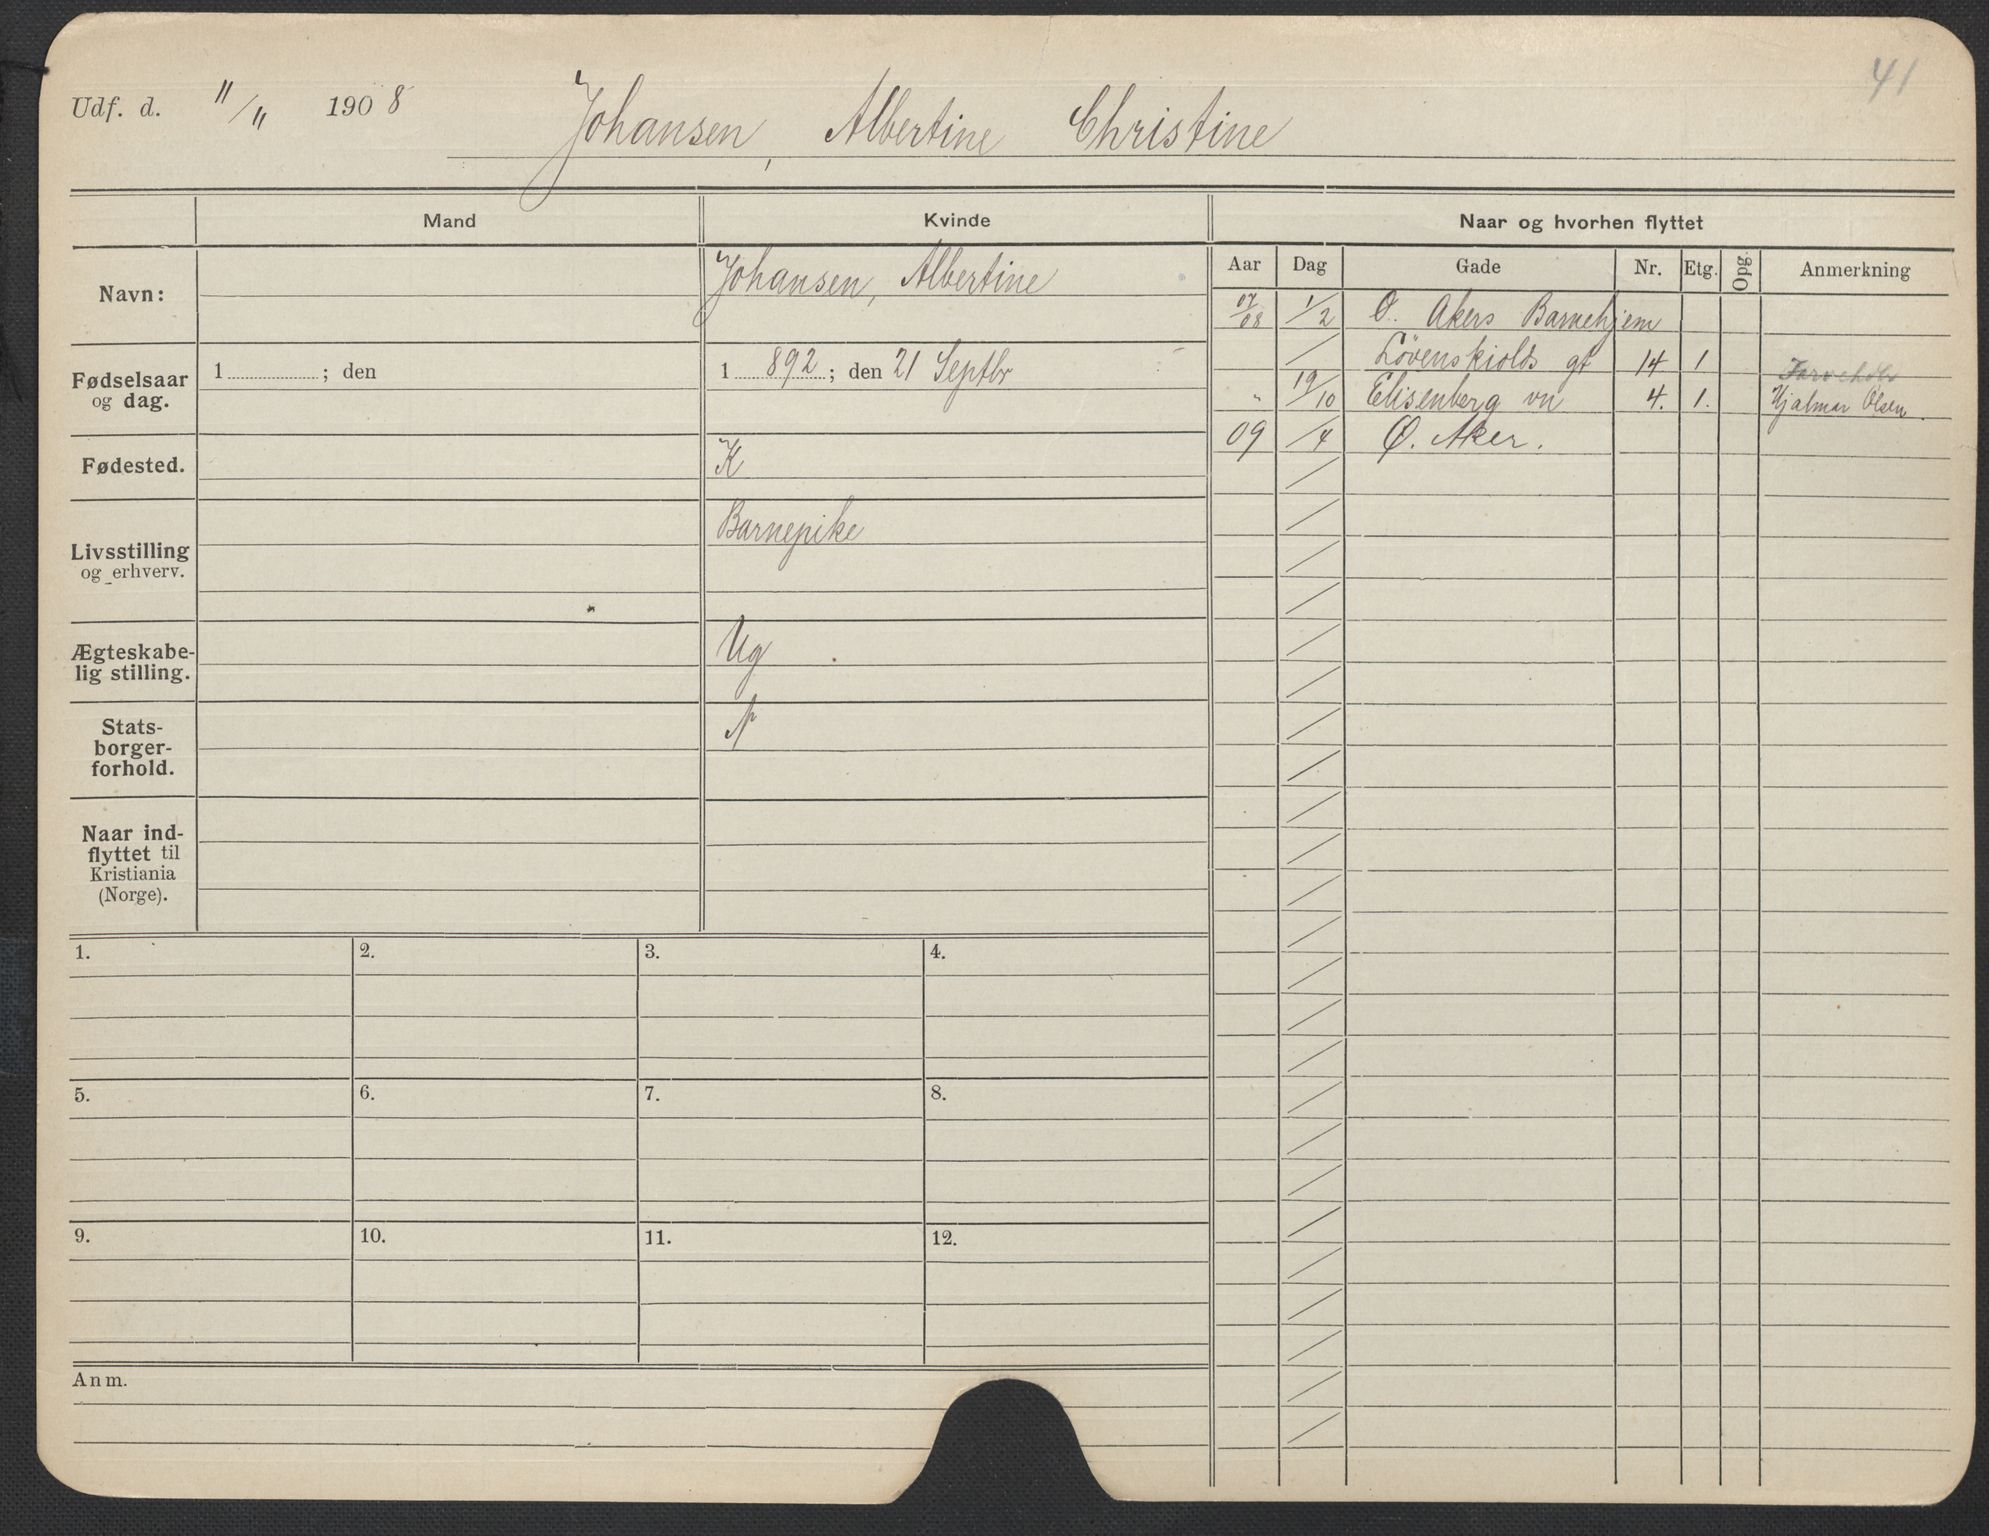 41
Udf. d. "/" 1908 Johansen, Albertine Christine
Mand Kvinde Naar og hvorhen flyttet
Aar Dag Gade Nr. Etg. Opg. Anmerkning
Navn: Johansen, Albertine
07/08 1/2 Ø. Akers Barnehjem
Løvenskiolds gt 14 1
Fødselsaar og dag. 1 ; den 1 892 ; den 21 Septbr
" 19/10 Elisenberg vn 4. 1. Hjalmar Olsen.
09 /4 Ø. Aker.
Fødested. K
Livsstilling og erhverv. Barnepike
Ægteskabe-
lig stilling. Ug
Stats-
borger-
forhold. N
Naar ind-
flyttet til
Kristiania
(Norge).
1. 2. 3. 4.
5. 6. 7. 8.
9. 10. 11. 12.
Anm.